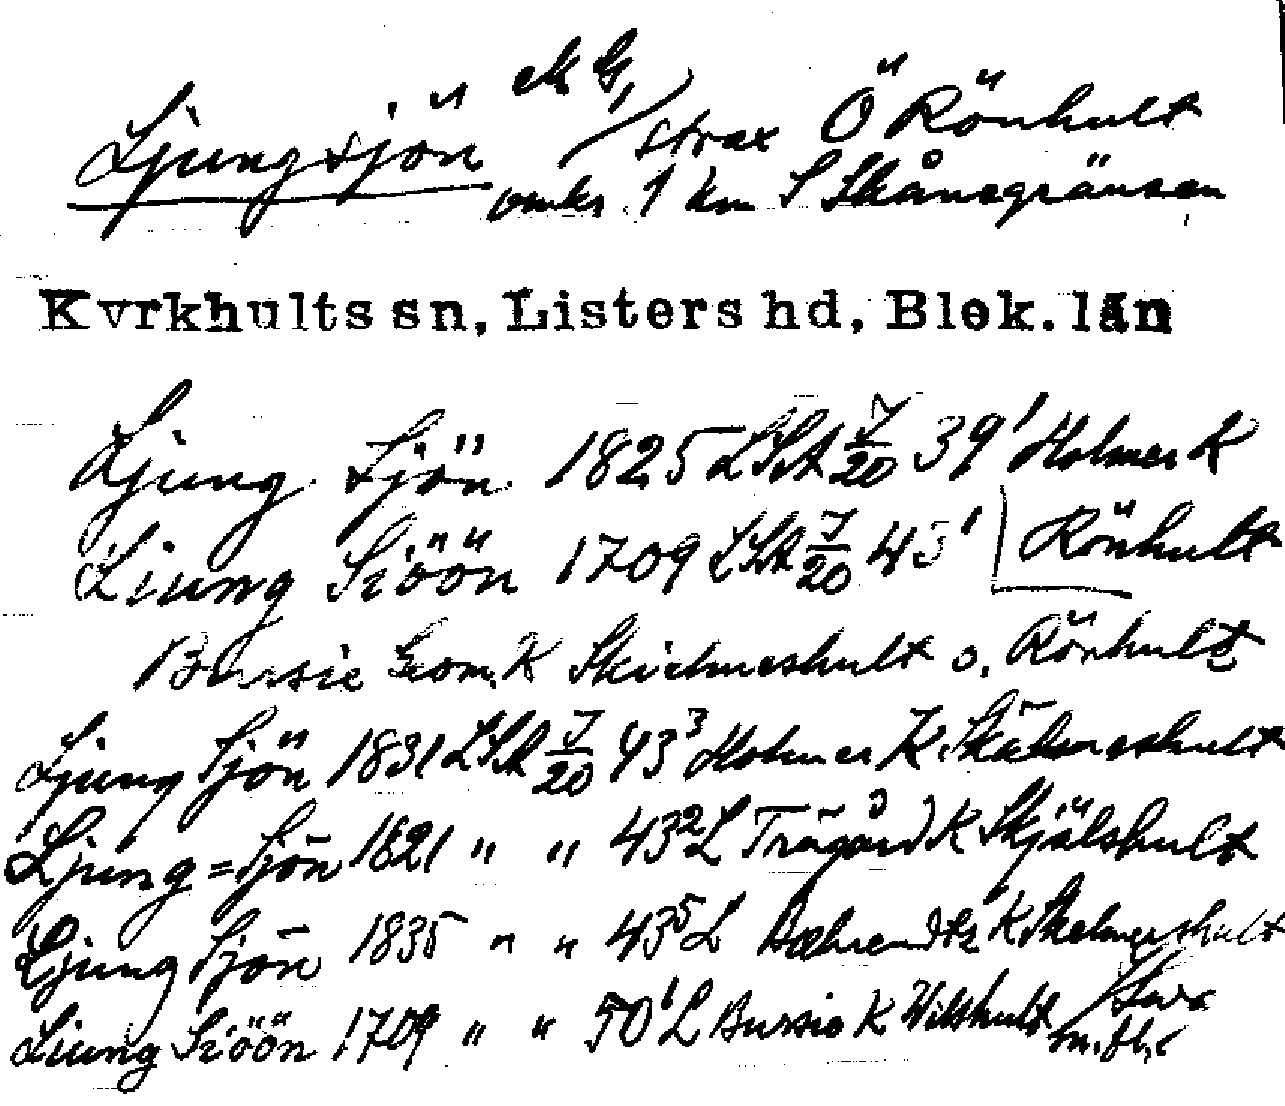 Ljungsjön ek G, / strax Ö Rönhult
omkr. 1 km S Skånegränsen
Kyrkhults sn, Listers hd, Blek. län
Ljung Sjön 1825 LSA J/20 39¹ Holmer K
Liung Siöön 1709 LSA J/20 43¹ Rönhult
Bursie Geom. K Skielmeshult o. Rönhult
Ljung Sjön 1831 LSA J/20 43³ Holmer K Skälmeshult
Ljung=Sjön 1821 " " 43² L Trägård K Skjälshult
Ljung Sjön 1835 " " 43⁵ L K Skelmershult
Liung Siöön 1709 " " 50¹ L Bursie K Wilshult m.fl.